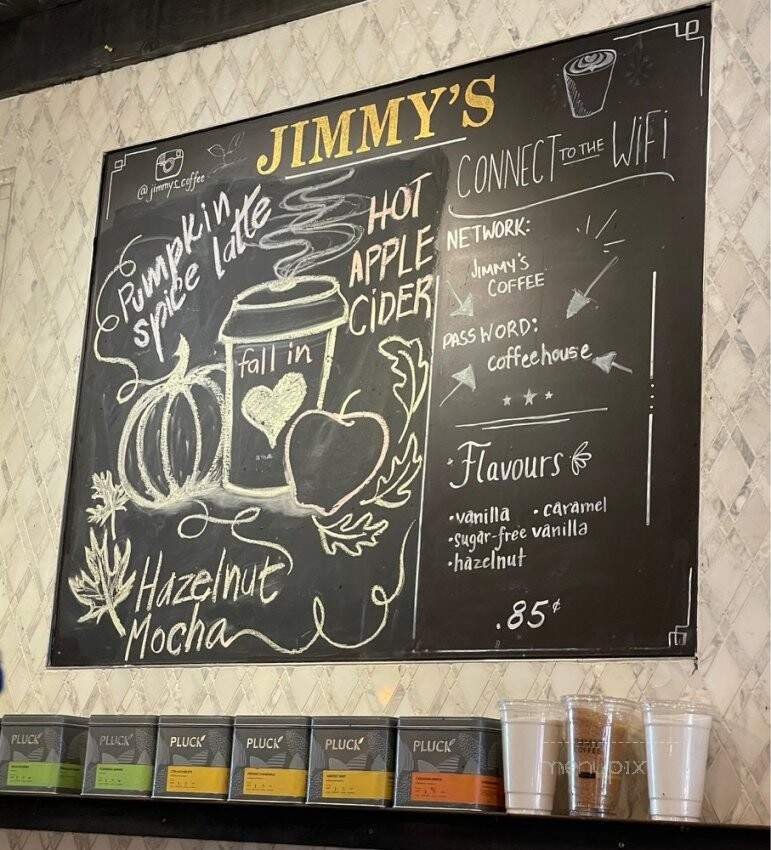 JIMMY'S
@jimmys_coffee
Pumpkin
spice latte
HOT
APPLE
CIDER
fall in
Hazelnut
Mocha
CONNECT TO THE WiFi
NETWORK:
JIMMY'S
COFFEE
PASSWORD:
coffeehouse
Flavours
•vanilla •caramel
•sugar-free vanilla
•hazelnut
.85¢
PLUCK
PLUCK
PLUCK
PLUCK
PLUCK
PLUCK
COFFEE
menupix